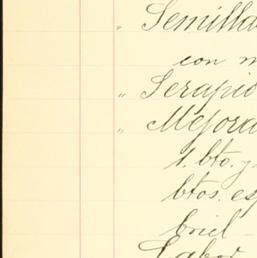 " Semilla
con m
" Serapio
" Mejora
1. bto. y
btos. esp
briel -
Labor